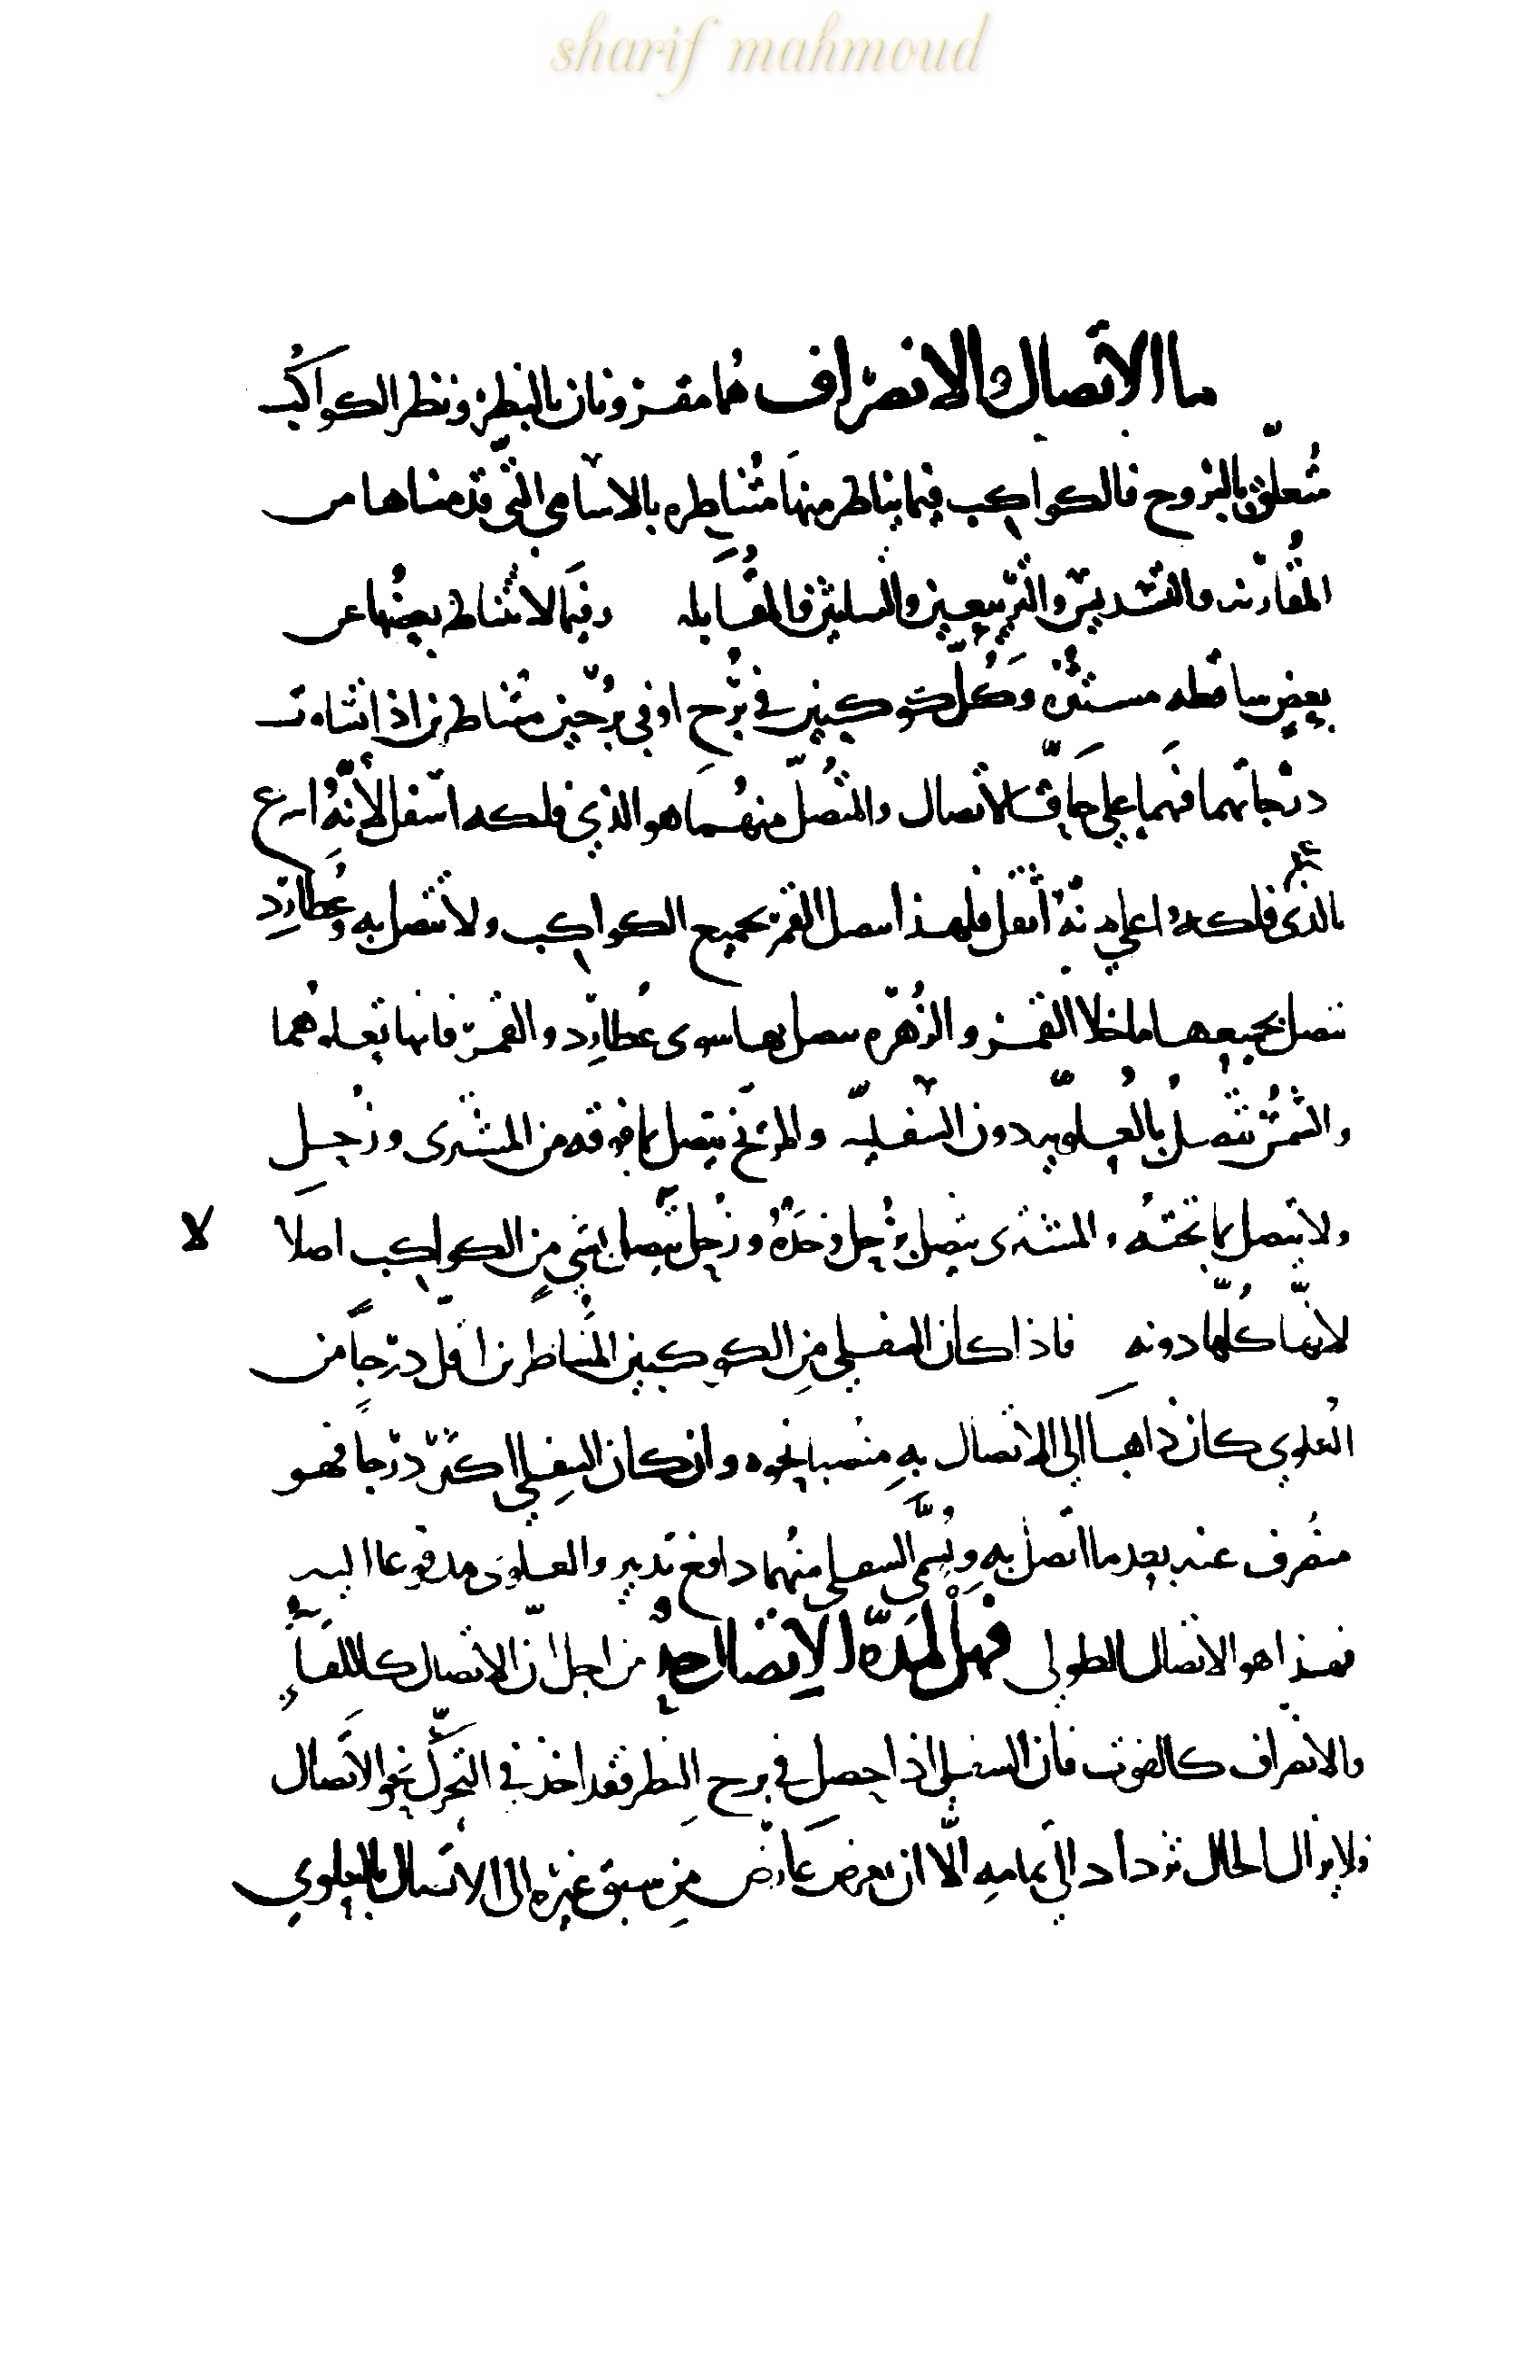 sharif mahmoud
ما الاتصال والانصراف هما مقرونان بالنظر ونظر الكواكب
متعلق بالبروج فالكواكب فيما يناظر منها متناظره بالاسامي التي قدمناها من
المقارنه والتسديس والتربيعين والتثليثين فالمقابله وفيما لا يتناظر بعضها عن
بعض ساقطه مستترة وكل كوكبين في برج او في برجين متناظرين اذا تشاوت
درجاتهما فهما على حاق الاتصال والمتصل منهما هو الذي فلكه اسفل لانه اسرع
بالذي فلكه اعلى انه اثقل فلهذا يتصل القمر بجميع الكواكب ولا تتصل به وعطارد
تتصل بجميعها ما خلا القمر والزهره يتصل بها سوى عطارد والقمر فانها تعلوهما
والشمس تتصل بالعلويه دون السفليه والمريخ يتصل بما فوقه من المشترى وزحل
ولا يتصل بما تحته والمشترى يتصل بزحل وحده وزحل يتصل بشي من الكواكب اصلا لا
لانها كلها دونه فاذا كان السفلي من الكوكبين المتناظرين اقل درجا من
العلوي كان ذاهبا الى الاتصال به منصبا نحوه وان كان السفلي اكثر درجا فهو
منصرف عنه بعد ما اتصل به ويسمى السفلي منهما دافع تدبير والعلوى مدفوعا اليه
فهذا هو الاتصال الطولي فهل لمدة الاتصال حد من اجل ان الاتصال كاللقاء
والانصراف كالفوت فان السفلي اذا حصل في برج النظر فقد اخذ في التحرك نحو الاتصال
ولا يزال الحال تزداد الى تمامه الا ان يعرض عارض من سبق غيره الى الاتصال بالعلوي